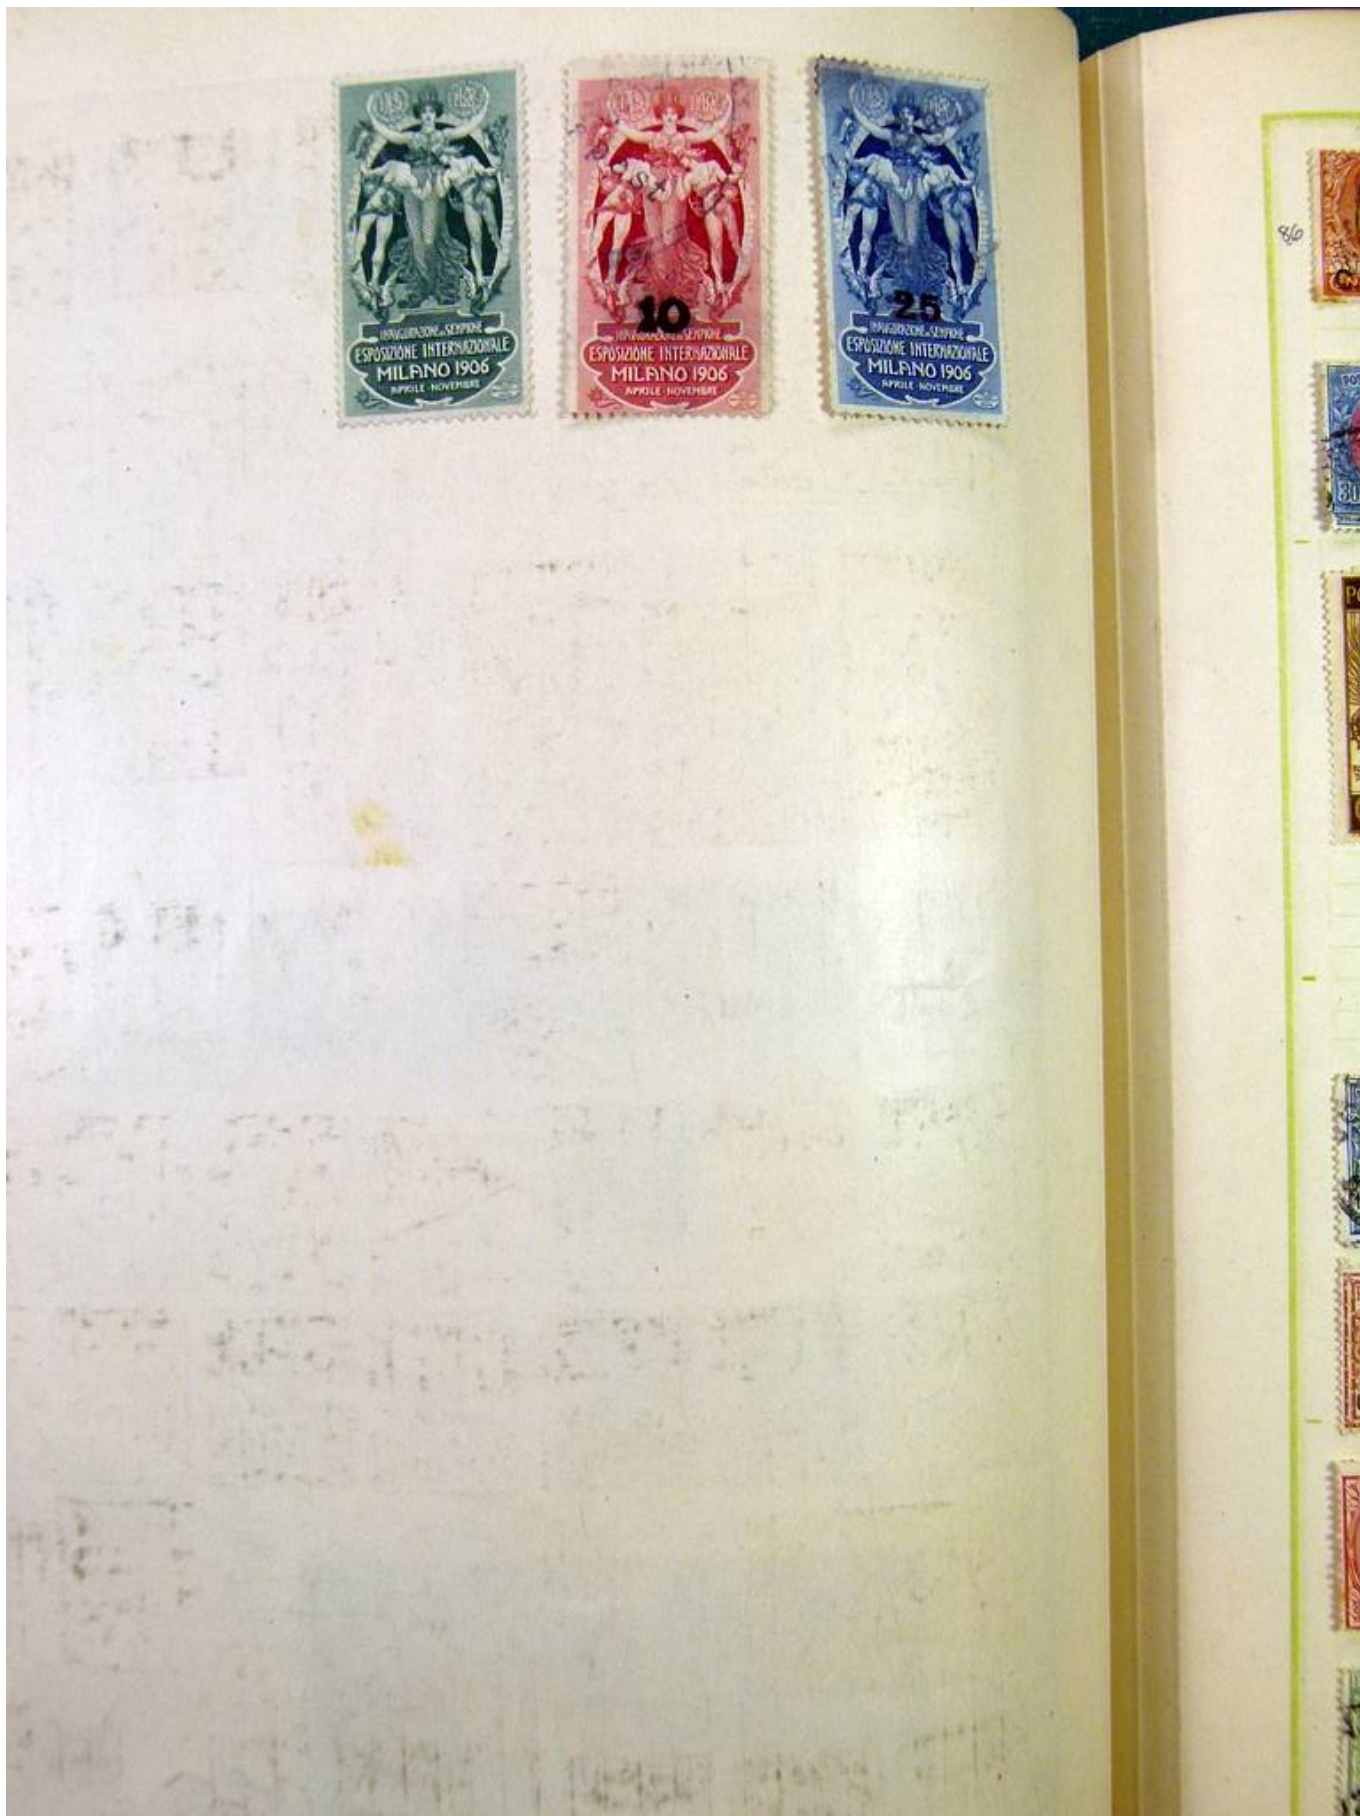 INAUGURAZIONE DEL SEMPIONE
ESPOSIZIONE INTERNAZIONALE
MILANO 1906
APRILE-NOVEMBRE
10
INAUGURAZIONE DEL SEMPIONE
ESPOSIZIONE INTERNAZIONALE
MILANO 1906
APRILE-NOVEMBRE
25
INAUGURAZIONE DEL SEMPIONE
ESPOSIZIONE INTERNAZIONALE
MILANO 1906
APRILE-NOVEMBRE
86